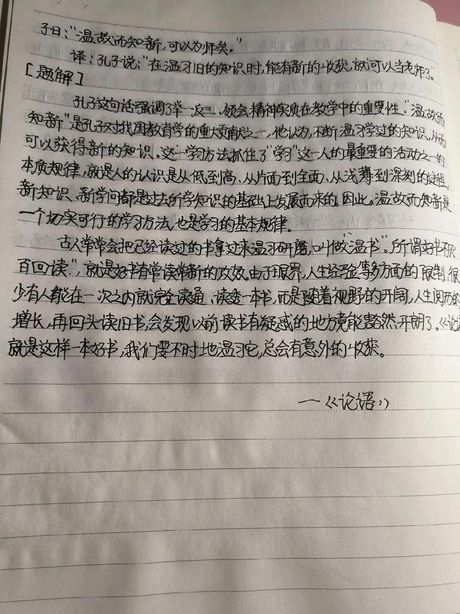 子曰:"温故而知新,可以为师矣。"
译:孔子说:"在温习旧的知识时,能有新的收获,就可以当老师了。
[题解]
孔子这句话强调了举一反三、领会精神实质在教学中的重要性。"温故而
知新"是孔子对我国教育学的重大贡献之一,他认为,不断温习学过的知识,从而
可以获得新的知识。这一学习方法抓住了"学习"这一人的最重要的活动之一的
本质规律,就是人的认识是从低到高、从片面到全面、从浅薄到深刻的过程,
新知识、新学问都是过去所学知识的基础上发展而来的。因此,温故而知新是
一个切实可行的学习方法,也是学习的基本规律。
古人常常会把已经读过的书拿过来温习研磨,叫做"温书"。所谓"好书不厌
百回读",就是好书常读常新的功效。由于眼界、人生经验等多方面的限制,很
少有人能在一次之内就完全读通、读透一本书,而是随着视野的开阔,人生阅历的
增长,再回头读旧书,会发现以前读书有疑惑的地方竟能豁然开朗了。《论
就是这样一本好书,我们要不时地温习它,总会有意外的收获。
—《论语》